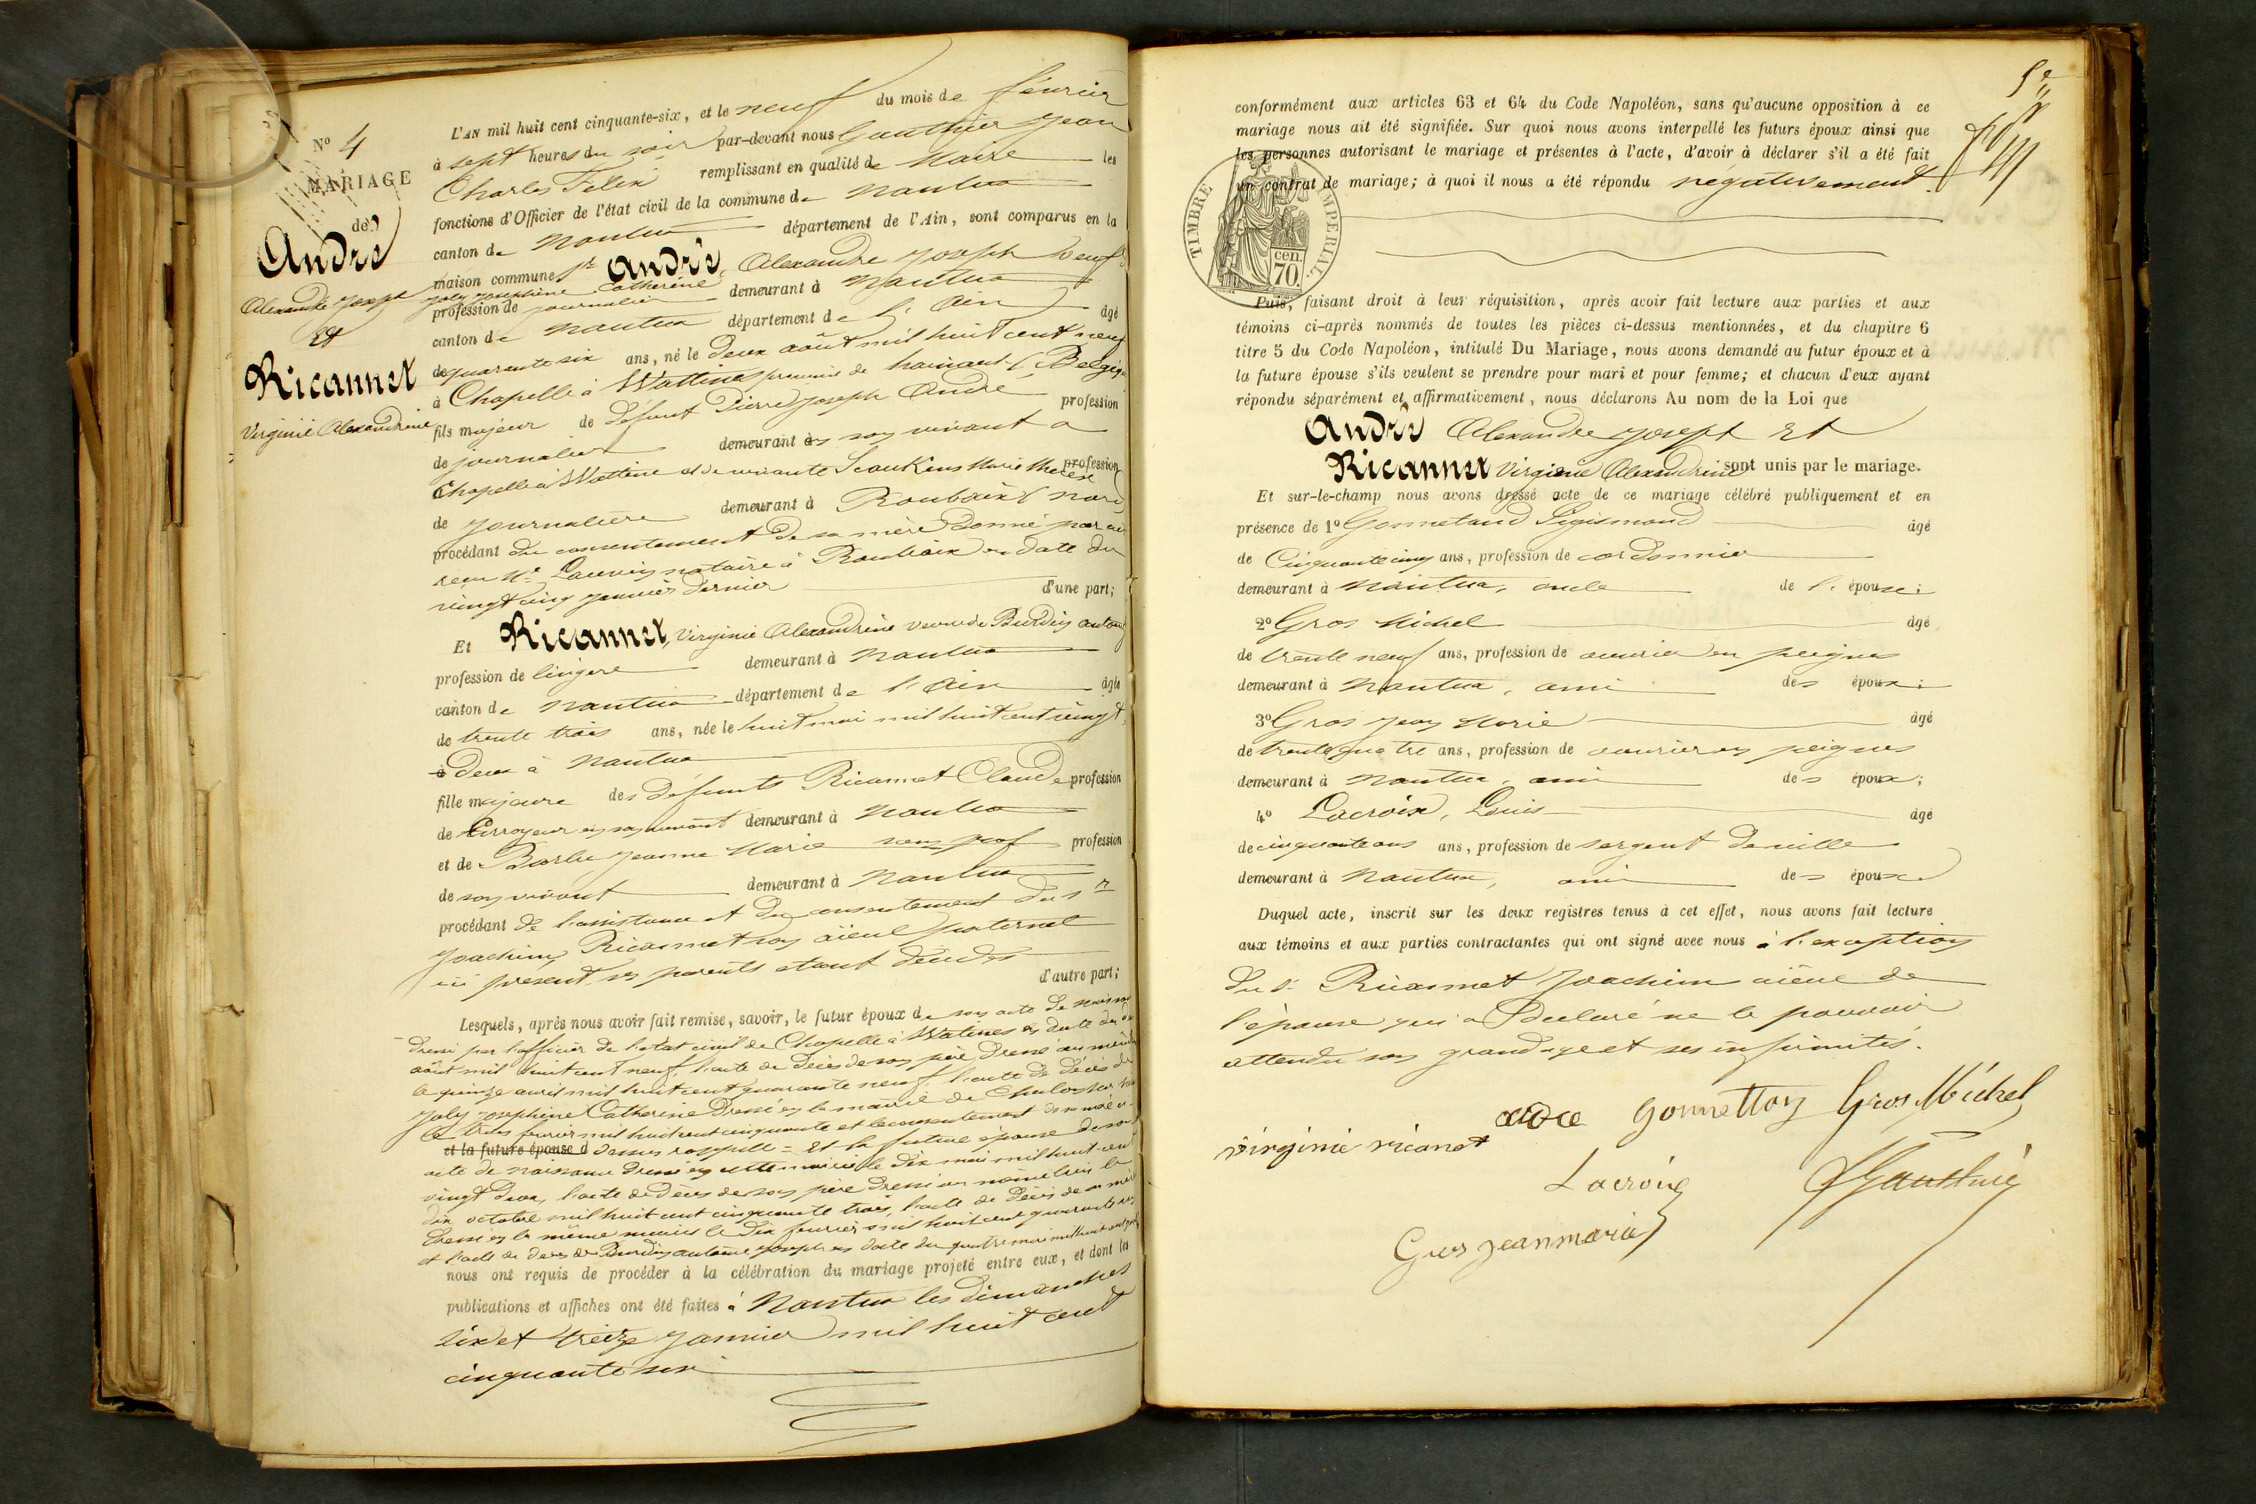 N° 4
MARIAGE
de
André
Alexandre Joseph
Et
Ricannet
Virginie Alexandrine
L'AN mil huit cent cinquante-six, et le neuf du mois de février
à sept heures du soir par-devant nous Gauthier Jean
Charles Félix remplissant en qualité de Maire les
fonctions d'Officier de l'état civil de la commune de Nantua
canton de Nantua département de l'Ain, sont comparus en la
maison commune Sr André, Alexandre Joseph veuf de
Joly Josephine Catherine
profession de journalier demeurant à Nantua
canton de Nantua département de l'Ain âgé
de quarante six ans, né le deux août mil huit cent neuf
à Chapelle à Wattines province de hainaut (Belgique
fils majeur de défunt Pierre Joseph André profession
de journalier demeurant en son vivant à
Chapelle à Wattine et de vivante Scaukens Marie Therese profession
de Journalière demeurant à Roubaix (nord)
procédant du consentement de sa mère donné par acte
reçu Me notaire à Roubaix en date du
vingt cinq janvier dernier d'une part;
Et Ricannet, Virginie Alexandrine veuve de Burdin antoine
profession de lingere demeurant à Nantua
canton de Nantua département de l'Ain âgée
de trente trois ans, née le huit mai mil huit cent vingt
deux à Nantua
fille majeure des défunts Ricannet Claude profession
de corroyeur en son vivant demeurant à Nantua
et de Barbe Jeanne Marie sans prof profession
de son vivant demeurant à Nantua
procédant de l'assistance et du consentement du Sr
Joachim Ricannet son aïeul paternel
ici présent, ses parents étant décédés d'autre part;
Lesquels, après nous avoir fait remise, savoir, le futur époux de son acte de naissance
dressé par l'officier de l'état civil de Chapelle à Watines en date du deux
août mil huit cent neuf, l'acte de décès de son père dressé au même lieu
le quinze avril mil huit cent quarante neuf, l'acte de décès de
Joly Josephine Catherine dressé en la mairie de
le trois février mil huit cent cinquante et le consentement de sa mère ci-
et la future épouse d dessus rappelé = et la future épouse de son
acte de naissance dressé en cette mairie le dix mai mil huit cent
vingt deux, l'acte de décès de son père dressé au même lieu le
dix octobre mil huit cent cinquante trois, l'acte de décès de sa mère
dressé en la même mairie le dix février mil huit cent quarante
et l'acte de décès de Burdin antoine joseph en date du quatre mai mil huit cent
nous ont requis de procéder à la célébration du mariage projeté entre eux, et dont les
publications et affiches ont été faites à Nantua les dimanches
six et treize Janvier mil huit cent
cinquante six
5e
conformément aux articles 63 et 64 du Code Napoléon, sans qu'aucune opposition à ce
mariage nous ait été signifiée. Sur quoi nous avons interpellé les futurs époux ainsi que
les personnes autorisant le mariage et présentes à l'acte, d'avoir à déclarer s'il a été fait
un contrat de mariage; à quoi il nous a été répondu négativement.
TIMBRE IMPERIAL.
cen.
70.
Puis, faisant droit à leur réquisition, après avoir fait lecture aux parties et aux
témoins ci-après nommés de toutes les pièces ci-dessus mentionnées, et du chapitre 6
titre 5 du Code Napoléon, intitulé Du Mariage, nous avons demandé au futur époux et à
la future épouse s'ils veulent se prendre pour mari et pour femme; et chacun d'eux ayant
répondu séparément et affirmativement, nous déclarons Au nom de la Loi que
André Alexandre Joseph Et
Ricannet Virginie Alexandrine sont unis par le mariage.
Et sur-le-champ nous avons dressé acte de ce mariage célébré publiquement et en
présence de 1° Gonnetand Sigismond âgé
de Cinquante cinq ans, profession de cordonnier
demeurant à Nantua, oncle de l'épouse;
2° Gros Michel âgé
de trente neuf ans, profession de ouvrier en peignes
demeurant à Nantua, ami des époux;
3° Gros Jean Marie âgé
de trente quatre ans, profession de ouvrier en peignes
demeurant à Nantua, ami des époux;
4° Lacroix, Louis âgé
de cinquante ans ans, profession de sergent de ville
demeurant à Nantua, ami des époux.
Duquel acte, inscrit sur les deux registres tenus à cet effet, nous avons fait lecture
aux témoins et aux parties contractantes qui ont signé avec nous à l'exception
du Sr Ricannet Joachim aïeul de
l'épouse qui a déclaré ne le pouvoir
attendu son grand âge et ses infirmités.
andre Gonnettan Gros Michel
virginie ricanet
Lacroix Gauthier
Gros jean marie